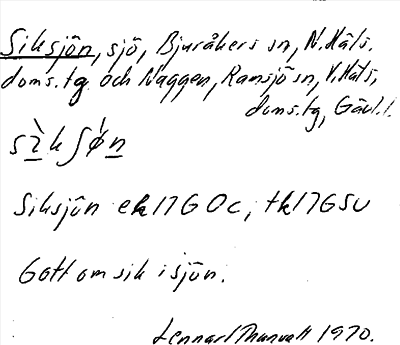 Siksjön, sjö, Bjuråkers sn, N. Häls.
doms.tg och Naggen, Ramsjö sn, V. Häls,
doms.tg, Gävl.l.
sì̲k ʃǿn̲
Siksjön ek 17G 0c, tk 17G SV
Gott om sik i sjön.
Lennart Thunvall 1970.